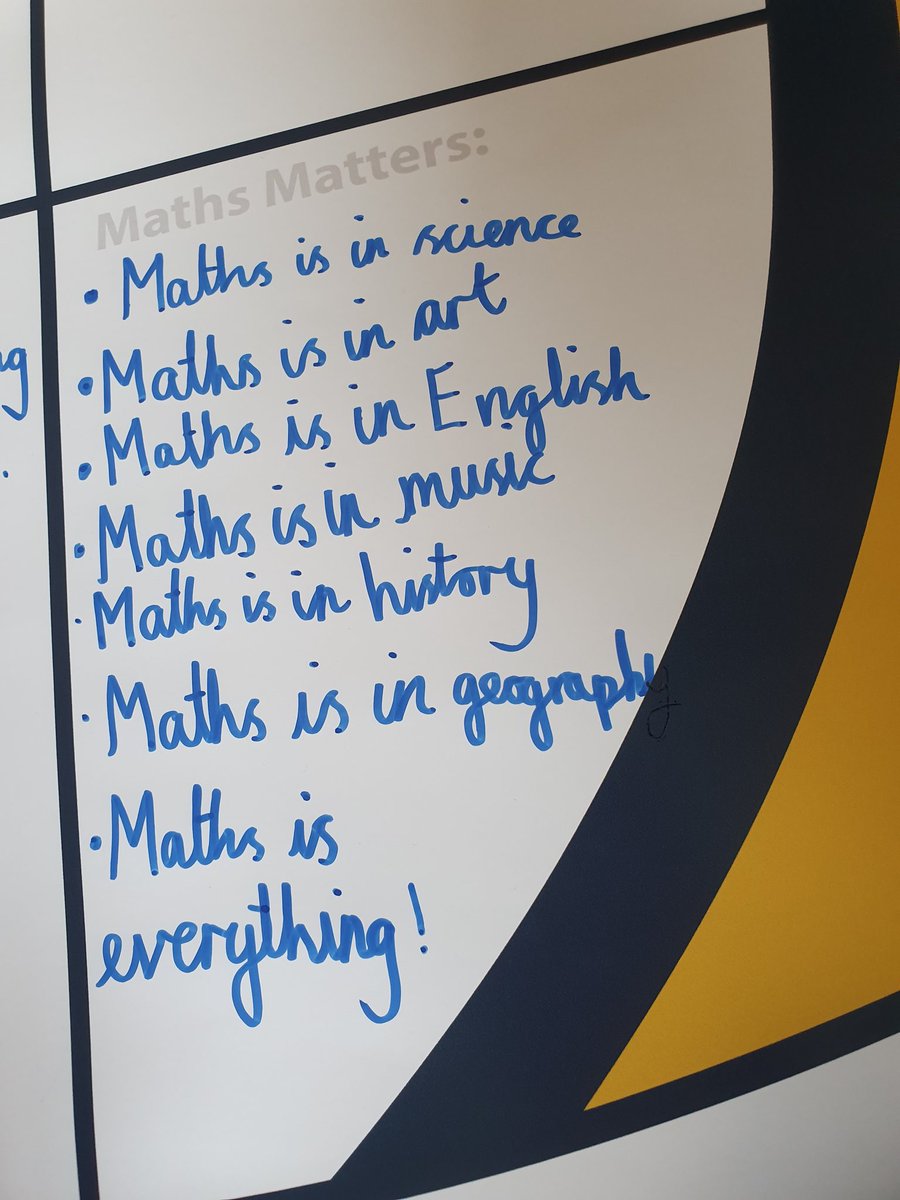 Maths Matters:
• Maths is in science
• Maths is in art
• Maths is in English
• Maths is in music
• Maths is in history
• Maths is in geography
• Maths is
everything!